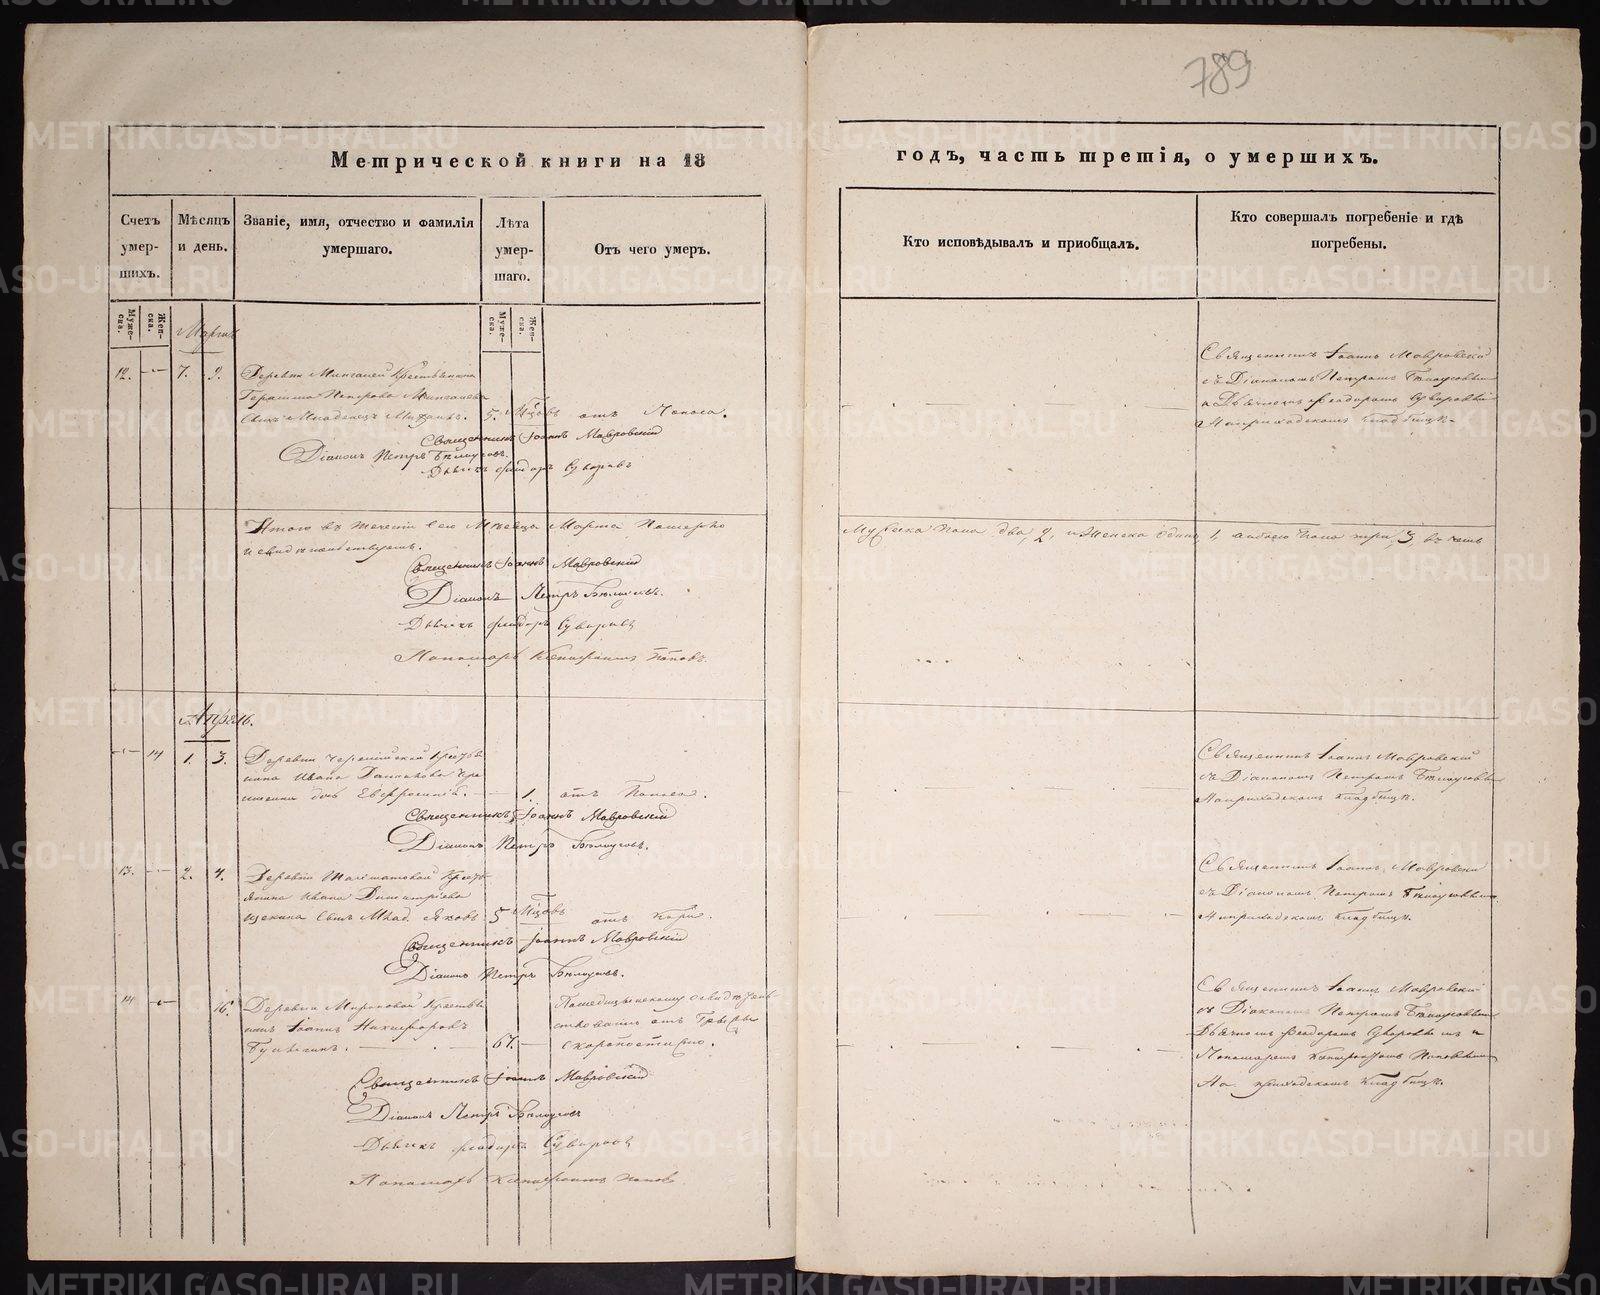 789
Метрической книги на 18
годъ, часть третія, о умершихъ.
Счетъ умер- шихъ.
Мѣсяцъ и день.
Званіе, имя, отчество и фамилія умершаго.
Лѣта умер- шаго.
Отъ чего умеръ.
Кто исповѣдывалъ и пріобщалъ.
Кто совершалъ погребеніе и гдѣ погребены.
Муже- ска.
Жен- ска.
Муже- ска.
Жен- ска.
Мартъ
12. 7. 9. Деревни Крестьянина
Герасима Петрова
сынъ Младенецъ 5. Мѣсяцъ отъ Поноса.
Священникъ Іоаннъ Мавровскій
Діаконъ Петръ Бѣлоусовъ.
Дьячекъ Феодоръ Суворовъ
Священникъ Іоаннъ Мавровскій
съ Діакономъ Петромъ Бѣлоусовымъ
и Дьячкомъ Феодоромъ Суворовымъ
На приходскомъ кладбищѣ.
Итого въ теченіи сего Мѣсяца Марта Померло
Мужеска пола два, 2, и Женска одинъ, 1, а обоего пола три, 3, въ чемъ
и свидѣтельствуемъ.
Священникъ Іоаннъ Мавровскій
Діаконъ Петръ Бѣлоусовъ.
Дьячекъ Феодоръ Суворовъ
Пономарь Ксенофонтъ Поповъ.
Апрѣль.
14 1. 3. Деревни Кресть-
янина Ивана
дочь Евфросинія. 1. отъ Поноса.
Священникъ Іоаннъ Мавровскій
Діаконъ Петръ Бѣлоусовъ.
Священникъ Іоаннъ Мавровскій
съ Діакономъ Петромъ Бѣлоусовымъ
На приходскомъ кладбищѣ.
13. 2. 4. Деревни Кресть-
янина Ивана Димитріева
сынъ Млад. Яковъ 5 Мѣсяцъ отъ Кори.
Священникъ Іоаннъ Мавровскій
Діаконъ Петръ Бѣлоусовъ.
Священникъ Іоаннъ Мавровскій
съ Діакономъ Петромъ Бѣлоусовымъ
На приходскомъ кладбищѣ.
14 16. Деревни Мироновой Крестья-
нинъ Іоаннъ Никифоровъ
67. скоропостижно.
Священникъ Іоаннъ Мавровскій
Діаконъ Петръ Бѣлоусовъ
Дьячекъ Феодоръ Суворовъ
Пономарь Ксенофонтъ Поповъ
Священникъ Іоаннъ Мавровскій
съ Діакономъ Петромъ Бѣлоусовымъ
Дьячкомъ Феодоромъ Суворовымъ и
Пономаремъ Ксенофонтомъ Поповымъ
На приходскомъ кладбищѣ.
METRIKI.GASO-URAL.RU